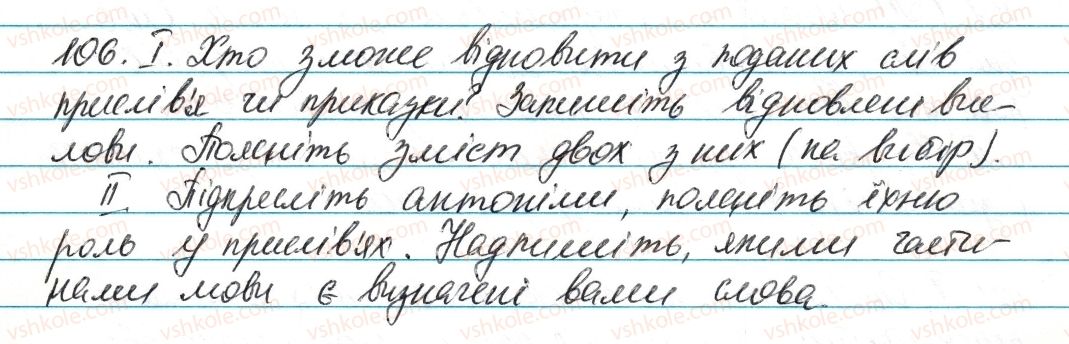 106. I. Хто зможе відновити з поданих слів
прислів'я чи приказки? Запишіть відновлені вис-
лови. Поясніть зміст двох з них (на вибір).
II. Підкресліть антоніми, поясніть їхню
роль у прислів'ях. Надпишіть, якими части-
нами мови є визначені вами слова.